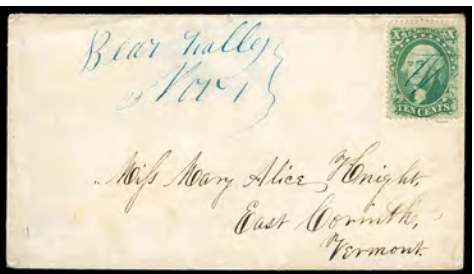 Bear Valley
Nov 1
X X
TEN CENTS
Miſs Mary Alice Knight,
East Corinth,
Vermont.